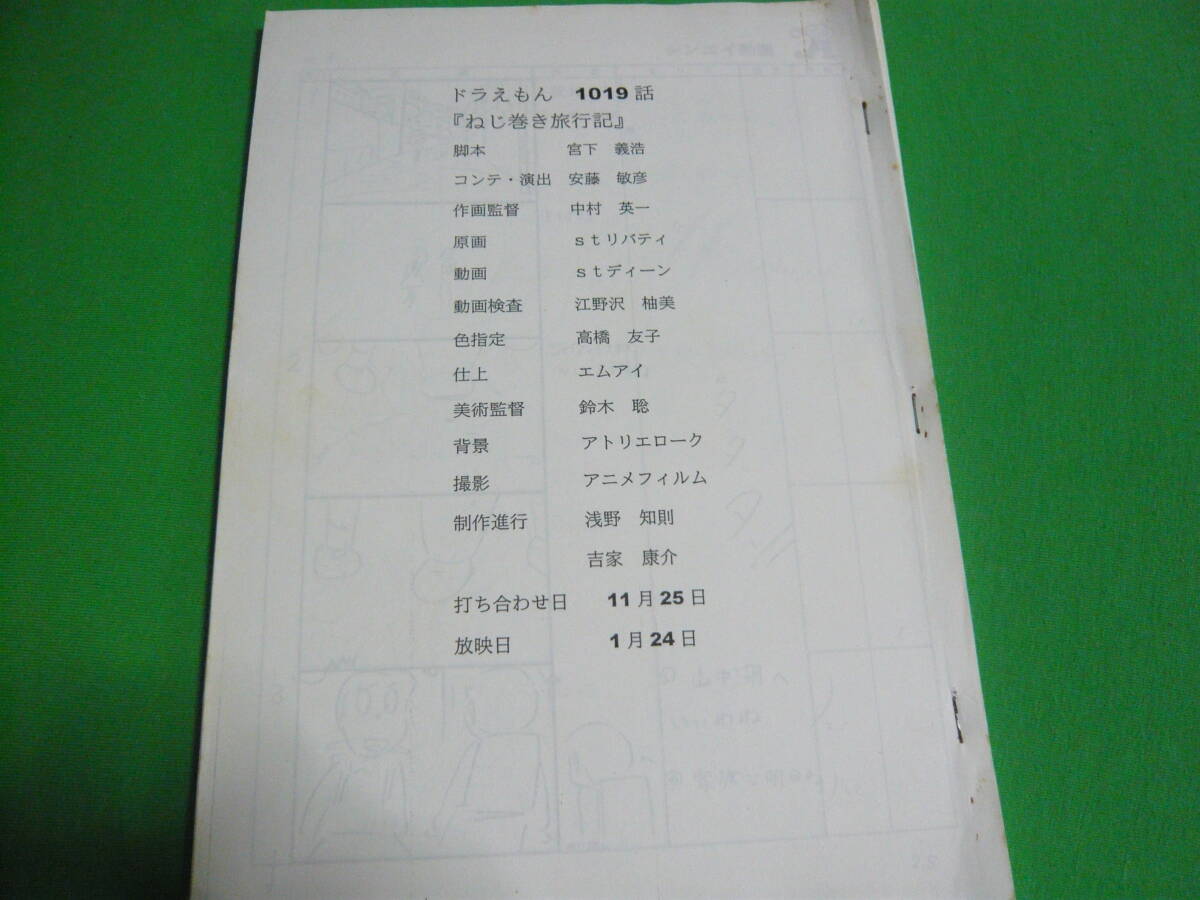 ドラえもん 1019話
『ねじ巻き旅行記』
脚本 宮下 義浩
コンテ・演出 安藤 敏彦
作画監督 中村 英一
原画 stリバティ
動画 stディーン
動画検査 江野沢 柚美
色指定 高橋 友子
仕上 エムアイ
美術監督 鈴木 聡
背景 アトリエローク
撮影 アニメフィルム
制作進行 浅野 知則
吉家 康介
打ち合わせ日 11月25日
放映日 1月24日